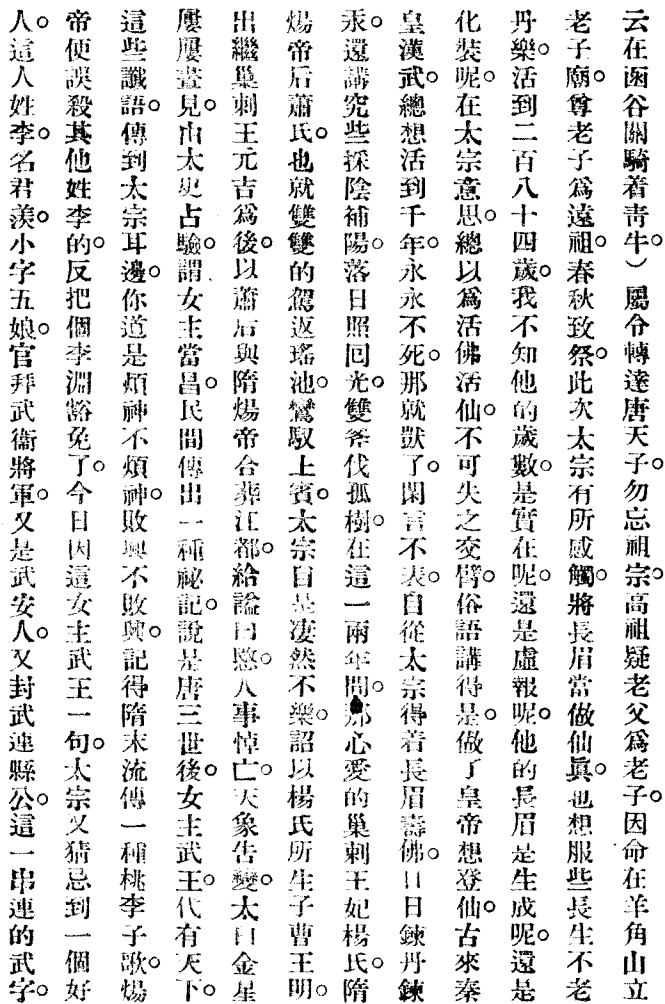 云在函谷關騎着靑牛）屬令轉達唐天子。勿忘祖宗。高祖疑老父爲老子。因命在羊角山立
老子廟。尊老子爲遠祖。春秋致祭。此次太宗有所感觸。將長眉當做仙眞。也想服些長生不老
丹藥。活到二百八十四歲。我不知他的歲數。是實在呢。還是虛報呢。他的長眉是生成呢。還是
化裝呢。在太宗意思。總以爲活佛活仙。不可失之交臂。俗語講得是。做了皇帝想登仙。古來秦
皇漢武。總想活到千年。永永不死。那就獃了。閑言不表。自從太宗得着長眉壽佛。日日鍊丹鍊
汞。還講究些採陰補陽。落日照回光。雙斧伐孤樹。在這一兩年間。那心愛的巢剌王妃楊氏。隋
煬帝后蕭氏。也就雙雙的駕返瑤池。鸞馭上賓。太宗自是凄然不樂。詔以楊氏所生子曹王明。
出繼巢剌王元吉爲後。以蕭后與隋煬帝合葬江都。給諡曰愍。人事悼亡。天象告變。太白金星
屢屢晝見。由太史占驗。謂女主當昌。民間傳出一種祕記。說是唐三世後。女主武王。代有天下。
這些讖語。傳到太宗耳邊。你道是煩神不煩神。敗興不敗興。記得隋末流傳一種桃李子歌。煬
帝便誤殺其他姓李的。反把個李淵豁免了。今日因這女主武王一句。太宗又猜忌到一個好
人。這人姓李。名君羨。小字五娘。官拜武衞將軍。又是武安人。又封武連縣公。這一串連的武字。